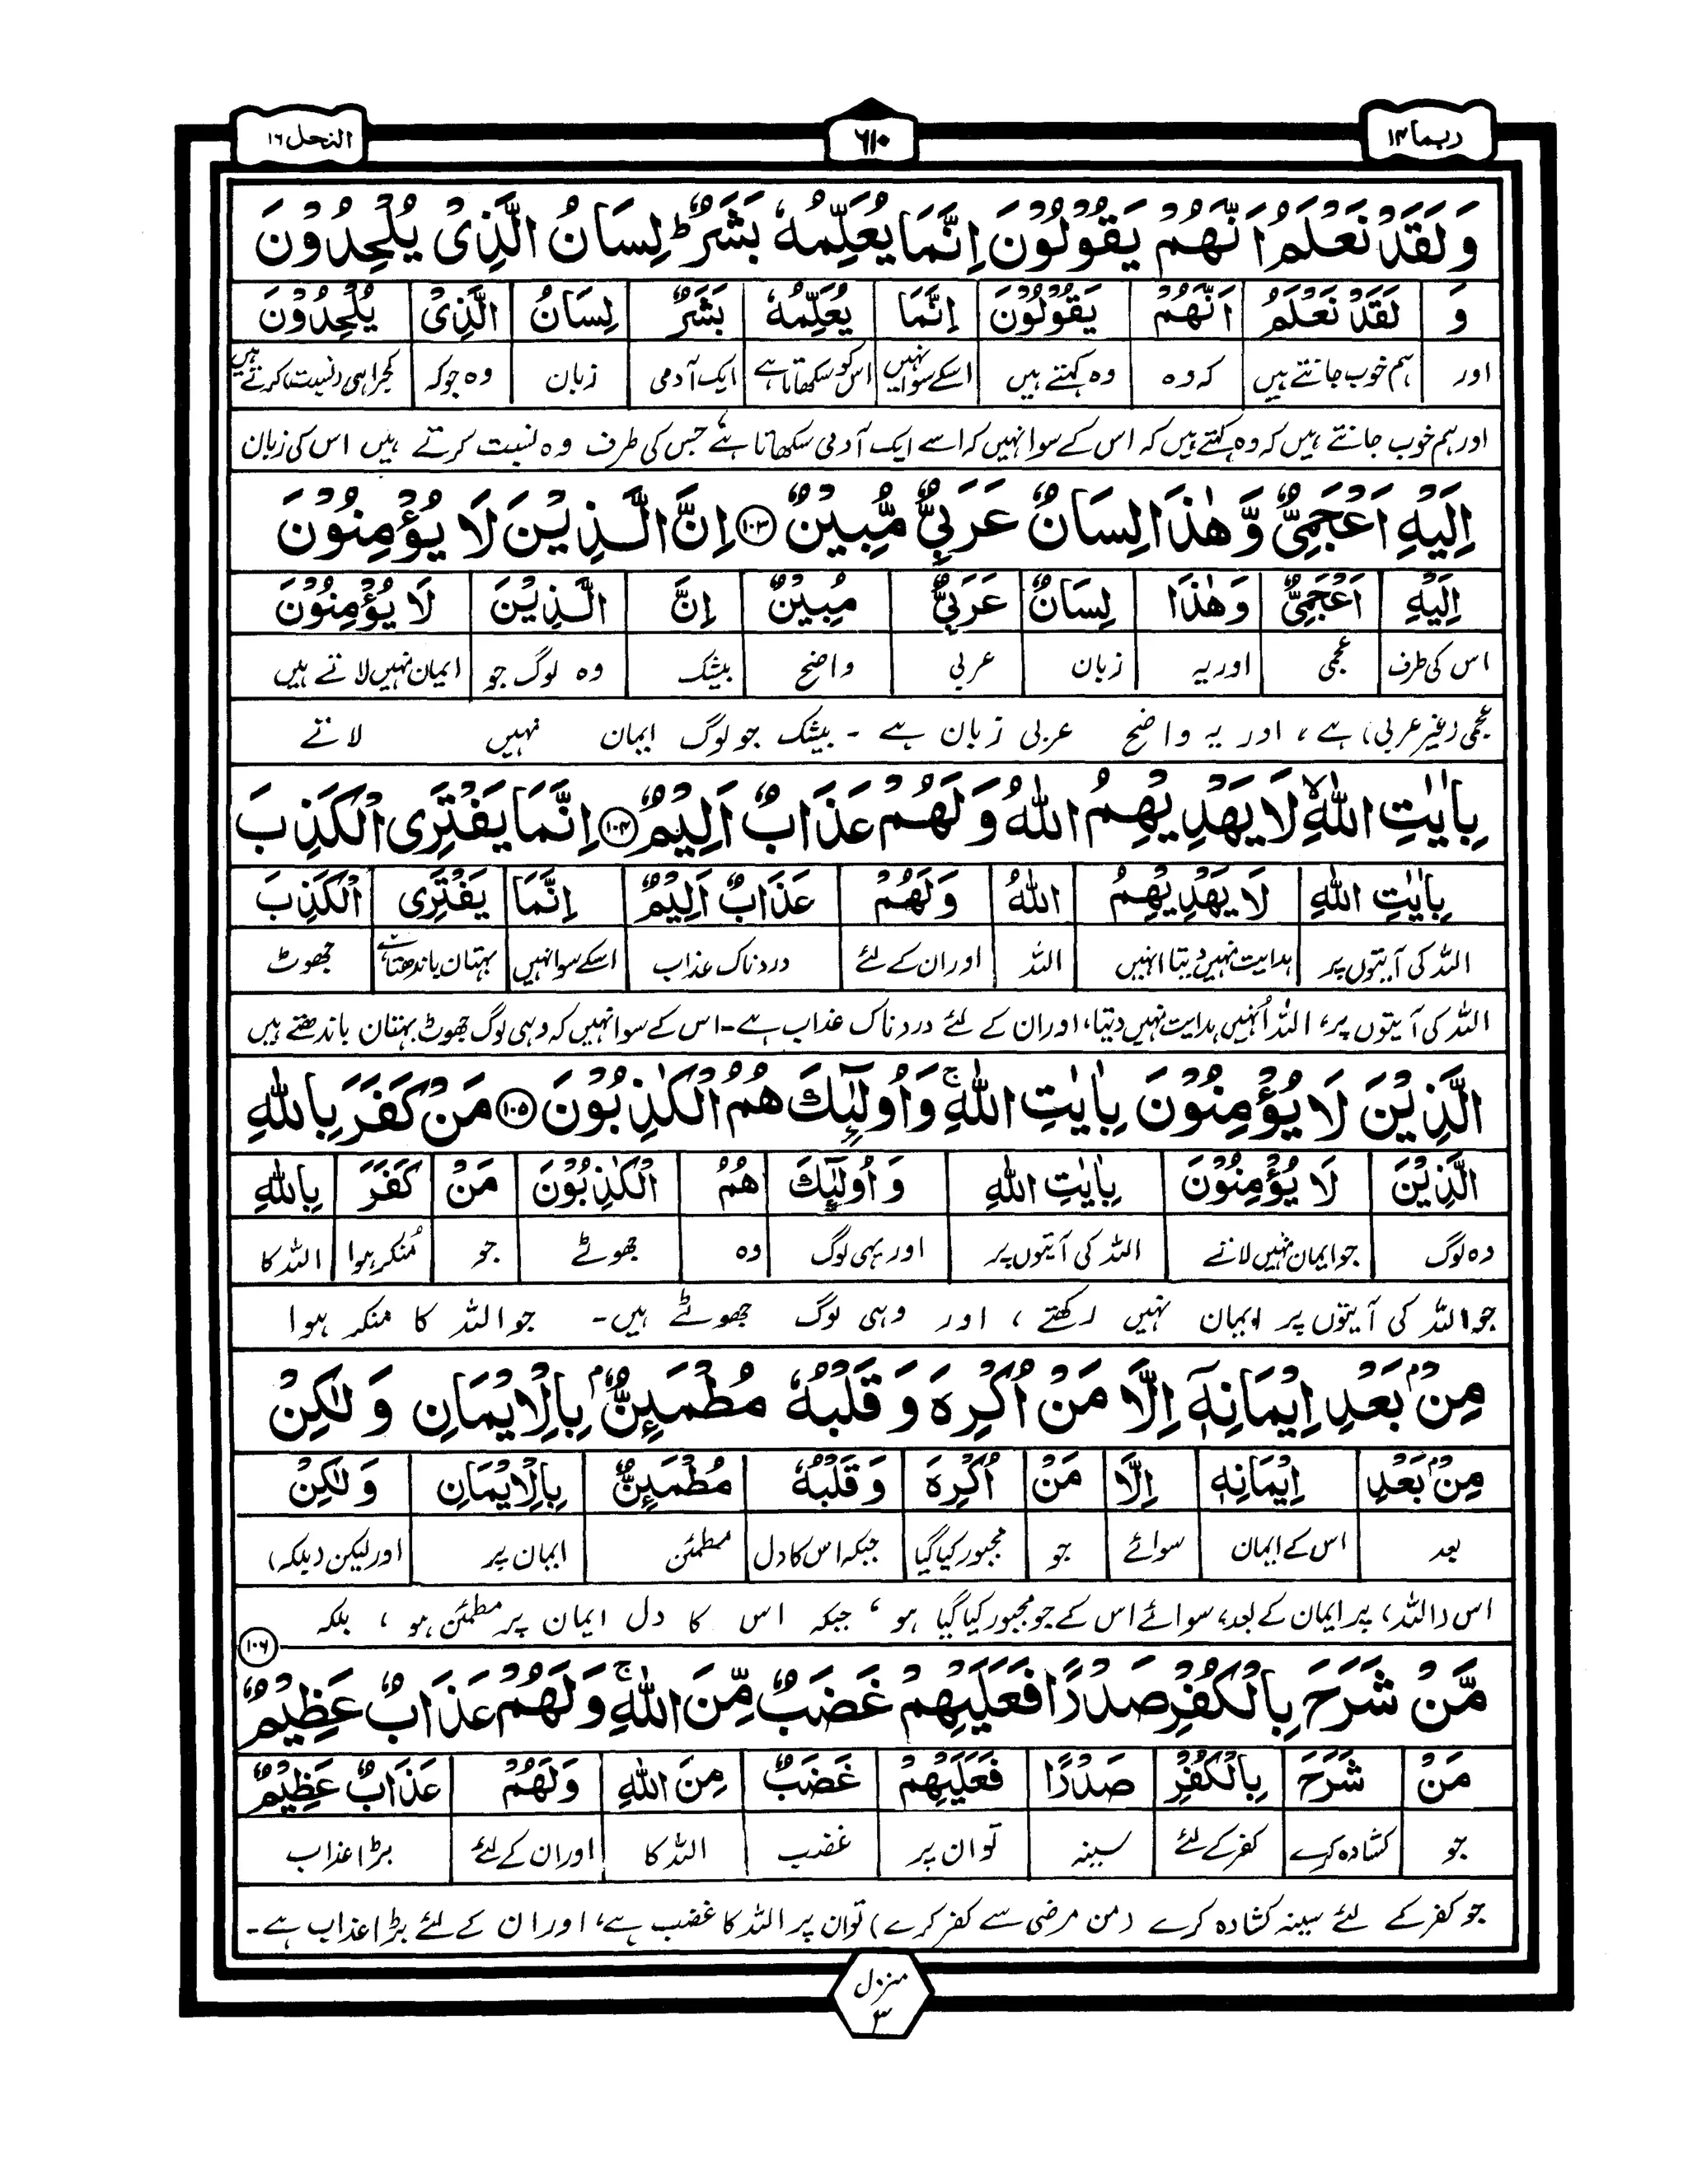 ربما ١٤
٦١٠
النحل ١٦
وَلَقَدْ نَعْلَمُ اَنَّهُمْ يَقُوْلُوْنَ اِنَّمَا يُعَلِّمُهٗ بَشَرٌ ؕ لِسَانُ الَّذِىْ يُلْحِدُوْنَ
وَ لَقَدْ نَعْلَمُ اَنَّهُمْ يَقُوْلُوْنَ اِنَّمَا يُعَلِّمُهٗ بَشَرٌ لِسَانُ الَّذِىْ يُلْحِدُوْنَ
اور ہم خوب جانتے ہیں کہ وہ وہ کہتے ہیں اسکے سوا نہیں اس کو سکھاتا ہے ایک آدمی زبان وہ جو کہ کجراہی (نسبت) کرتے ہیں
اور ہم خوب جانتے ہیں کہ وہ کہتے ہیں کہ اس کے سوا نہیں کہ اسے ایک آدمی سکھاتا ہے جس کی طرف وہ نسبت کرتے ہیں اس کی زبان
اِلَيْهِ اَعْجَمِىٌّ وَّهٰذَا لِسَانٌ عَرَبِىٌّ مُّبِيْنٌ ١٠٣ اِنَّ الَّذِيْنَ لَا يُؤْمِنُوْنَ
اِلَيْهِ اَعْجَمِىٌّ وَهٰذَا لِسَانٌ عَرَبِىٌّ مُبِيْنٌ اِنَّ الَّذِيْنَ لَا يُؤْمِنُوْنَ
اس کی طرف عجمی اور یہ زبان عربی واضح بیشک وہ لوگ جو ایمان نہیں لاتے ہیں
عجمی (غیر عربی) ہے ، اور یہ واضح عربی زبان ہے ۔ بیشک جو لوگ ایمان نہیں لاتے
بِاٰيٰتِ اللّٰهِ ۙ لَا يَهْدِيْهِمُ اللّٰهُ وَلَهُمْ عَذَابٌ اَلِيْمٌ ١٠٤ اِنَّمَا يَفْتَرِى الْكَذِبَ
بِاٰيٰتِ اللّٰهِ لَا يَهْدِيْهِمُ اللّٰهُ وَلَهُمْ عَذَابٌ اَلِيْمٌ اِنَّمَا يَفْتَرِى الْكَذِبَ
اللہ کی آیتوں پر ہدایت نہیں دیتا انہیں اللہ اور ان کے لئے دردناک عذاب اسکے سوا نہیں بہتان باندھتا ہے جھوٹ
اللہ کی آیتوں پر، اللہ اُنہیں ہدایت نہیں دیتا، اور ان کے لئے دردناک عذاب ہے۔ اس کے سوا نہیں کہ وہی لوگ جھوٹ بہتان باندھتے ہیں
الَّذِيْنَ لَا يُؤْمِنُوْنَ بِاٰيٰتِ اللّٰهِ ۚ وَاُولٰٓئِكَ هُمُ الْكٰذِبُوْنَ ١٠٥ مَنْ كَفَرَ بِاللّٰهِ
الَّذِيْنَ لَا يُؤْمِنُوْنَ بِاٰيٰتِ اللّٰهِ وَاُولٰٓئِكَ هُمُ الْكٰذِبُوْنَ مَنْ كَفَرَ بِاللّٰهِ
وہ لوگ جو ایمان نہیں لاتے اللہ کی آیتوں پر اور یہی لوگ وہ جھوٹے جو مُنکر ہوا اللہ کا
جو اللہ کی آیتوں پر ایمان نہیں رکھتے ، اور وہی لوگ جھوٹے ہیں۔ جو اللہ کا منکر ہوا
مِنْۢ بَعْدِ اِيْمَانِهٖٓ اِلَّا مَنْ اُكْرِهَ وَقَلْبُهٗ مُطْمَئِنٌّۢ بِالْاِيْمَانِ وَلٰكِنْ
مِنْۢ بَعْدِ اِيْمَانِهٖ اِلَّا مَنْ اُكْرِهَ وَقَلْبُهٗ مُطْمَئِنٌّ بِالْاِيْمَانِ وَلٰكِنْ
بعد اس کے ایمان سوائے جو مجبور کیا گیا جبکہ اس کا دل مطمئن ایمان پر اور لیکن (بلکہ)
اس (اللہ) پر ایمان کے بعد، سوائے اس کے جو مجبور کیا گیا ہو ، جبکہ اس کا دل ایمان پر مطمئن ہو ، بلکہ
مَّنْ شَرَحَ بِالْكُفْرِ صَدْرًا فَعَلَيْهِمْ غَضَبٌ مِّنَ اللّٰهِ ۚ وَلَهُمْ عَذَابٌ عَظِيْمٌ ١٠٦
مَنْ شَرَحَ بِالْكُفْرِ صَدْرًا فَعَلَيْهِمْ غَضَبٌ مِنَ اللّٰهِ وَلَهُمْ عَذَابٌ عَظِيْمٌ
جو کشادہ کرے کفر کے لئے سینہ تو ان پر غضب اللہ کا اور ان کے لئے بڑا عذاب
جو کفر کے لئے سینہ کشادہ کرے (من مرضی سے کفر کرے) تو ان پر اللہ کا غضب ہے، اور ان کے لئے بڑا عذاب ہے۔
منزل
٣